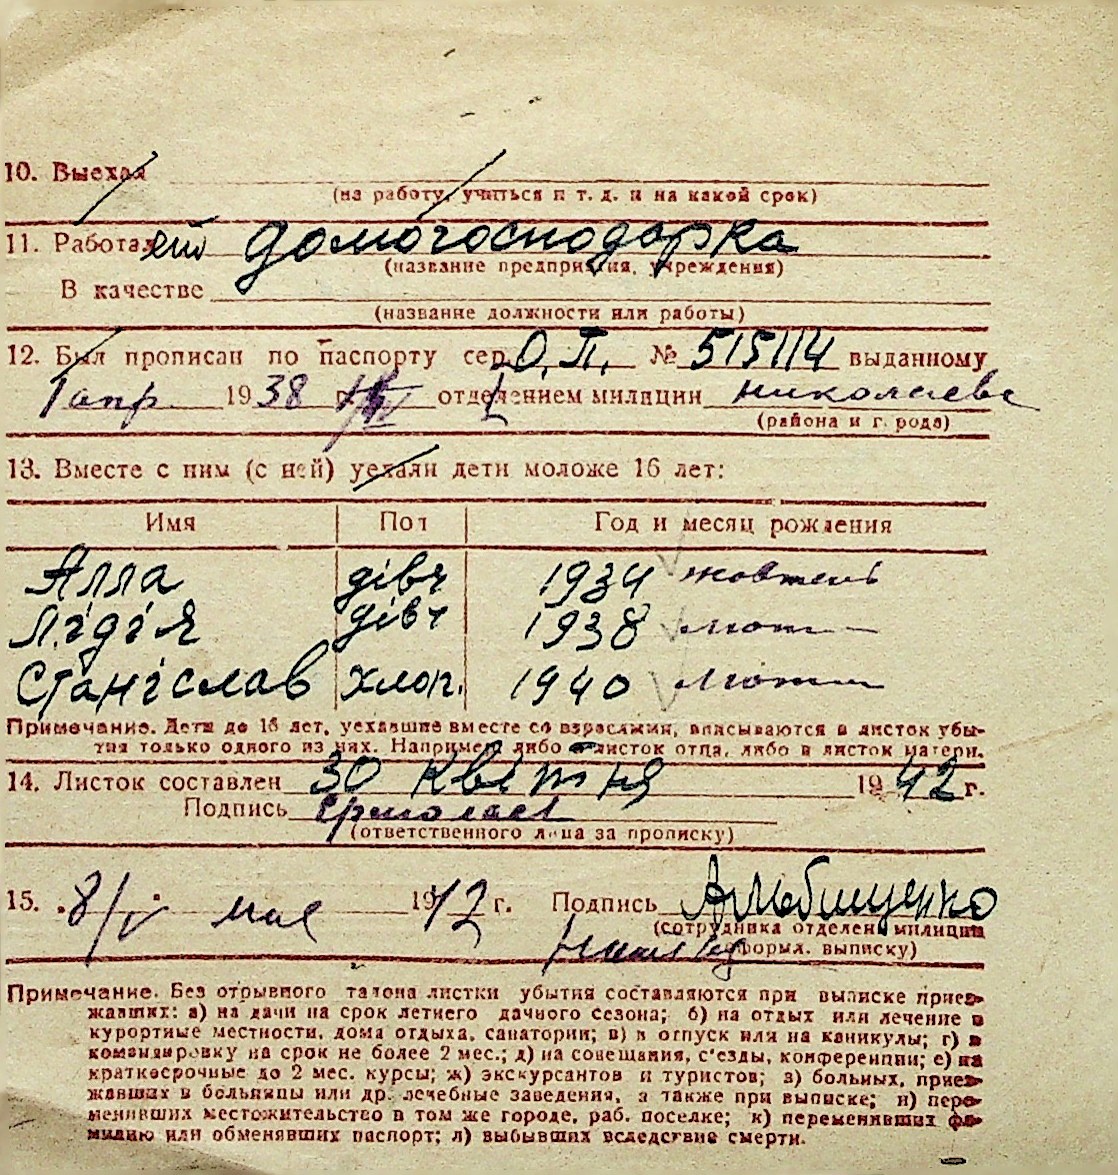 10. Выехал
(на работу, учиться и т. д. и на какой срок)
11. Работает домогосподарка
(название предприятия, учреждения)
В качестве
(название должности или работы)
12. Был прописан по паспорту сер. О.П. № 515114 выданному
1 апр. 1938 г. отделением милиции Николаев
(района и города)
13. Вместе с ним (с ней) уехали дети моложе 16 лет:
Имя Пол Год и месяц рождения
Алла дівч 1934 жовтень
Лідія дівч 1938 лют
Станіслав хлоп. 1940 лют
Примечание. Дети до 16 лет, уехавшие вместе со взрослыми, вписываются в листок убы-
тия только одного из них. Например либо в листок отца, либо в листок матери.
14. Листок составлен 30 квітня 1942 г.
Подпись
(ответственного лица за прописку)
15. 8/V мая 1942 г. Подпись
(сотрудника отделен. милиции
оформл. выписку)
Примечание. Без отрывного талона листки убытия составляются при выписке приез-
жавших: а) на дачи на срок летнего дачного сезона; б) на отдых или лечение в
курортные местности, дома отдыха, санатории; в) в отпуск или на каникулы; г) в
командировку на срок не более 2 мес.; д) на совещания, с'езды, конференции; е) на
краткосрочные до 2 мес. курсы; ж) экскурсантов и туристов; з) больных, приез-
жавших в больницы или др. лечебные заведения, а также при выписке; и) пере-
менивших местожительство в том же городе, раб. поселке; к) переменивших фа-
милию или обменявших паспорт; л) выбывших вследствие смерти.